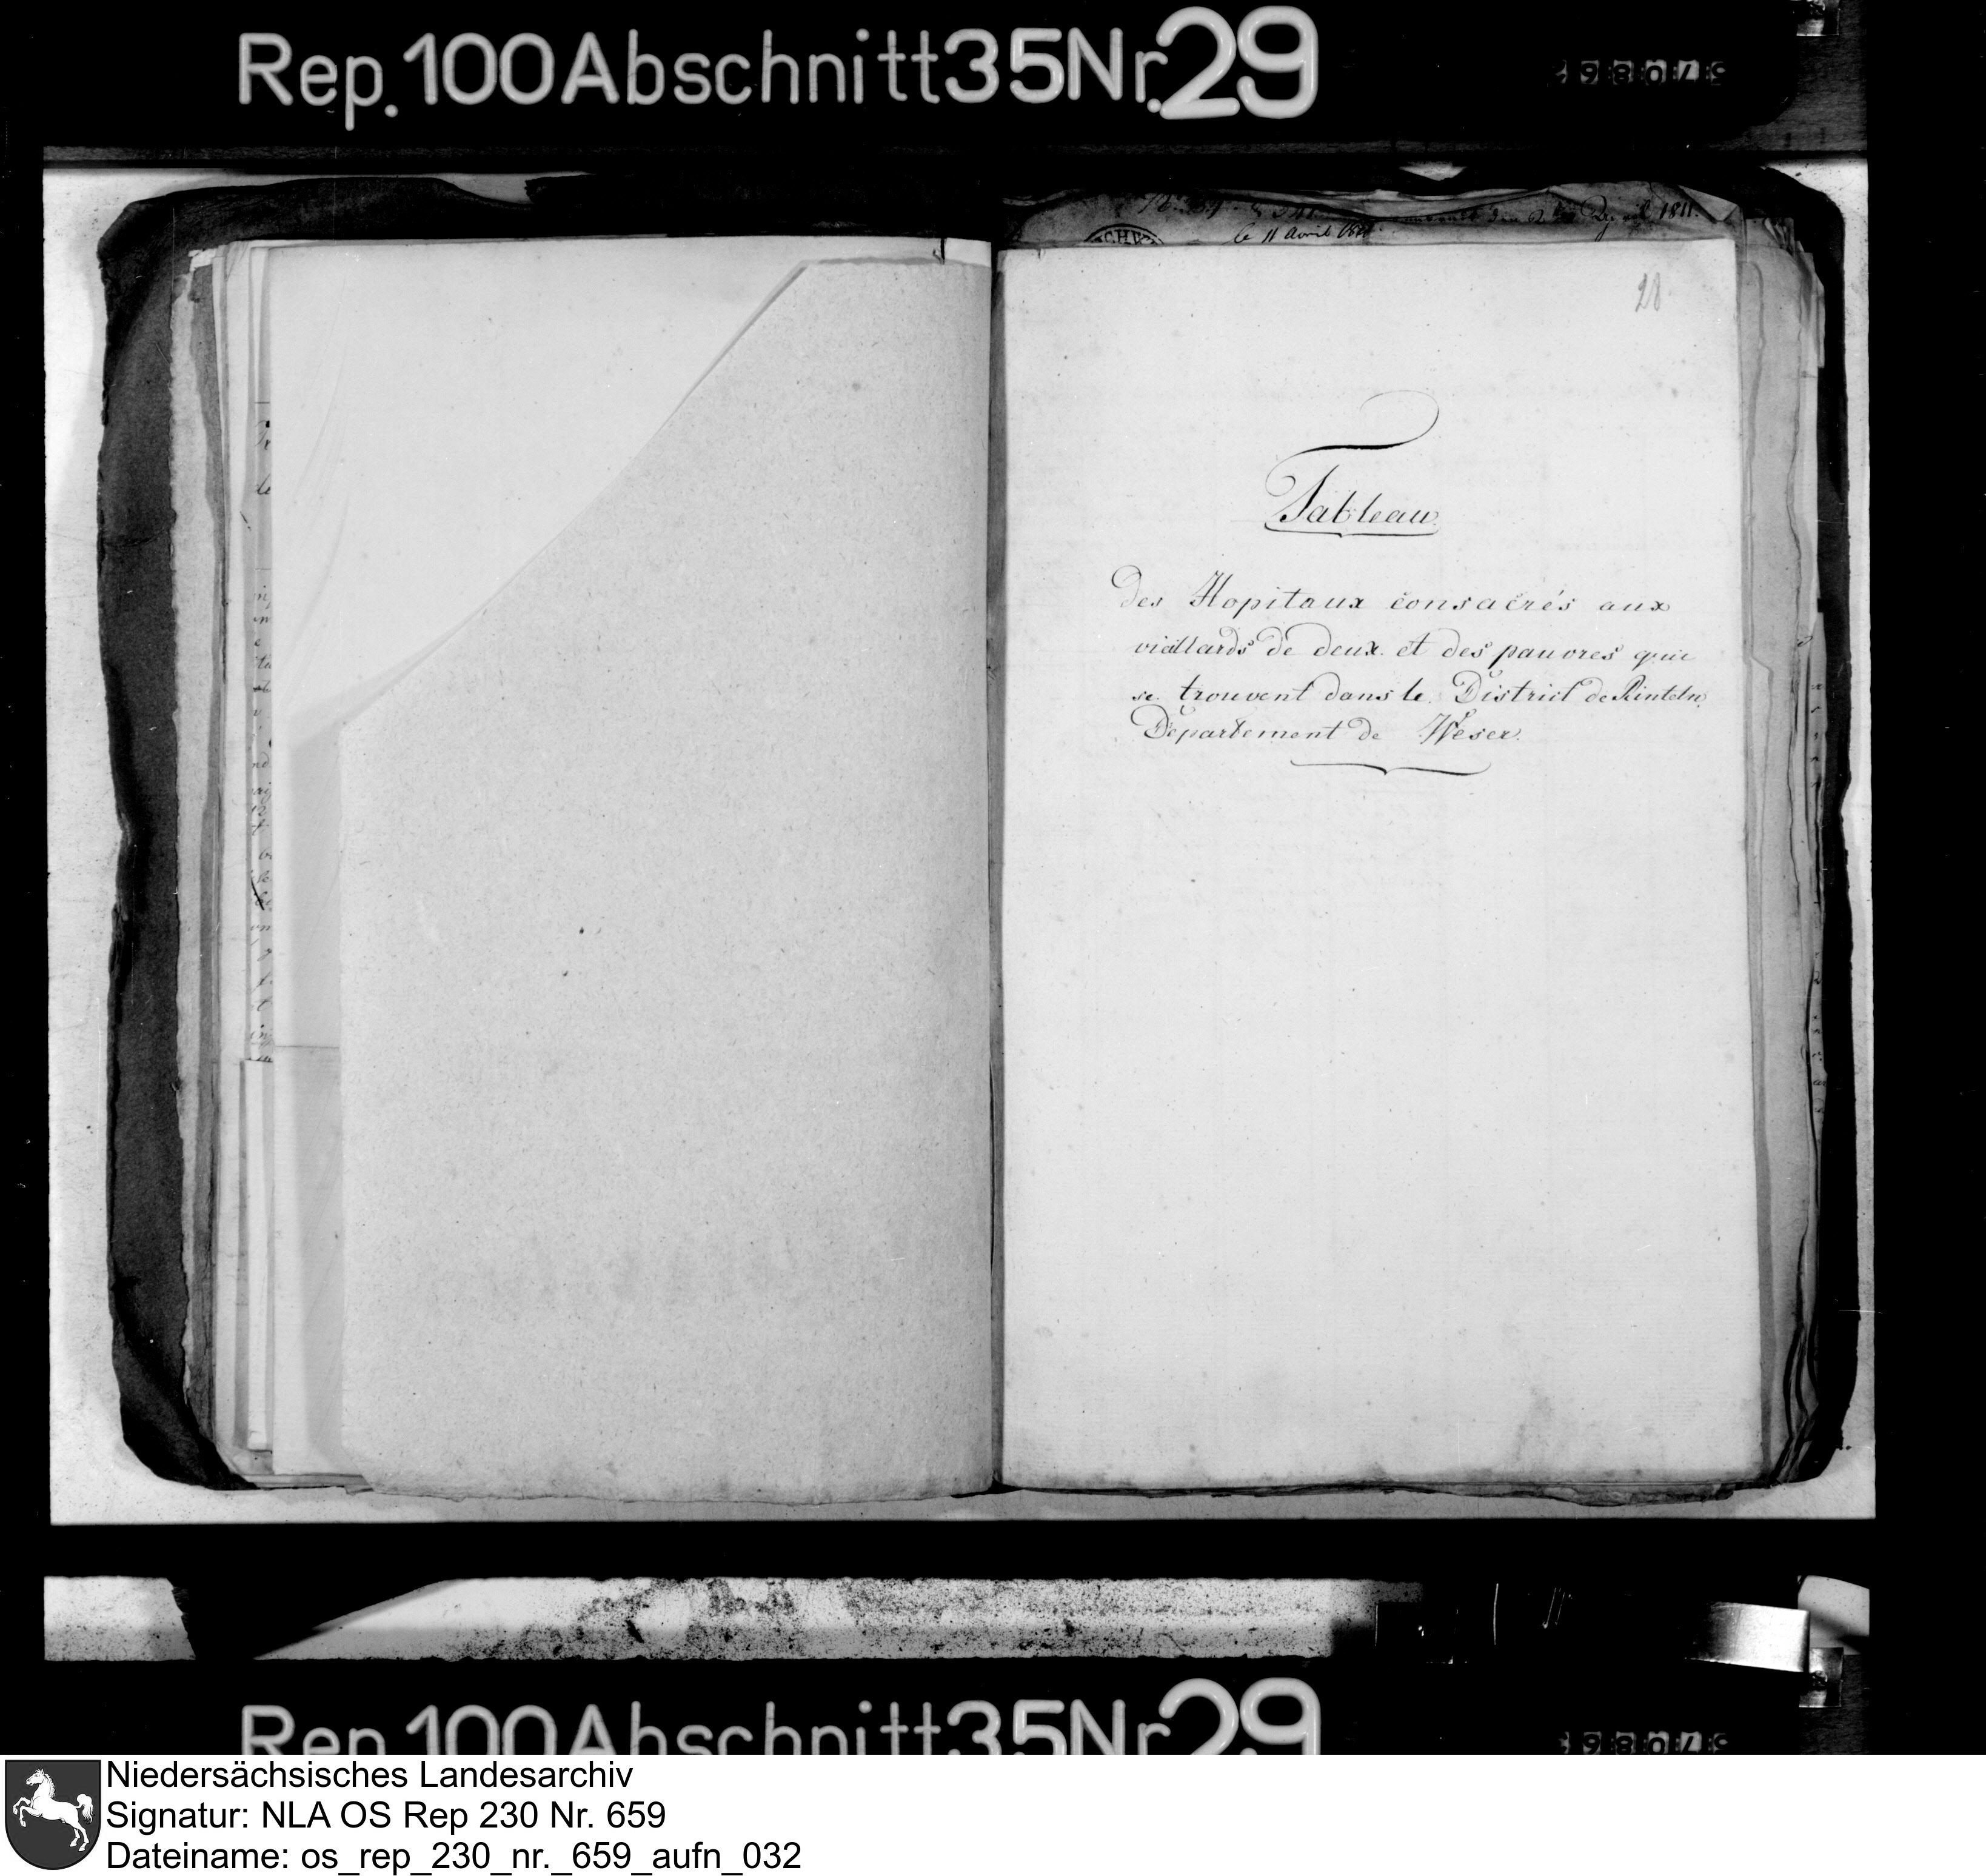 Rep. 100 Abschnitt 35 Nr. 29
1811.
le 11 Avril
28
Tableau.
des Hopitaux consacrés aux
vieillards de deux et des pauvres qui
se trouvent dans le District de Rinteln,
Département de Weser.
Rep. 100 Abschnitt 35 Nr. 29
Niedersächsisches Landesarchiv
Signatur: NLA OS Rep 230 Nr. 659
Dateiname: os_rep_230_nr._659_aufn_032